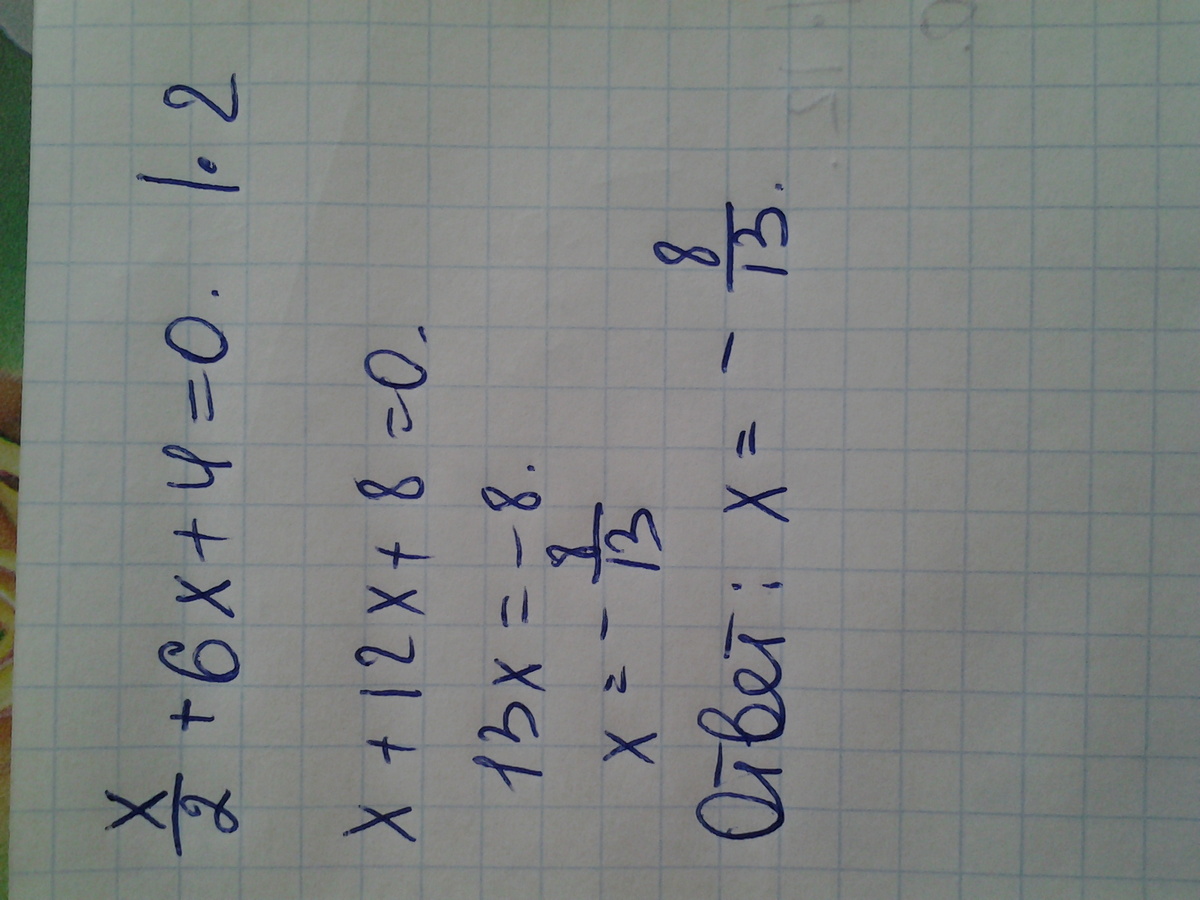 x/2 + 6x + 4 = 0. | · 2
x + 12x + 8 = 0.
13x = - 8.
x = - 8/13
Ответ: x = - 8/13.